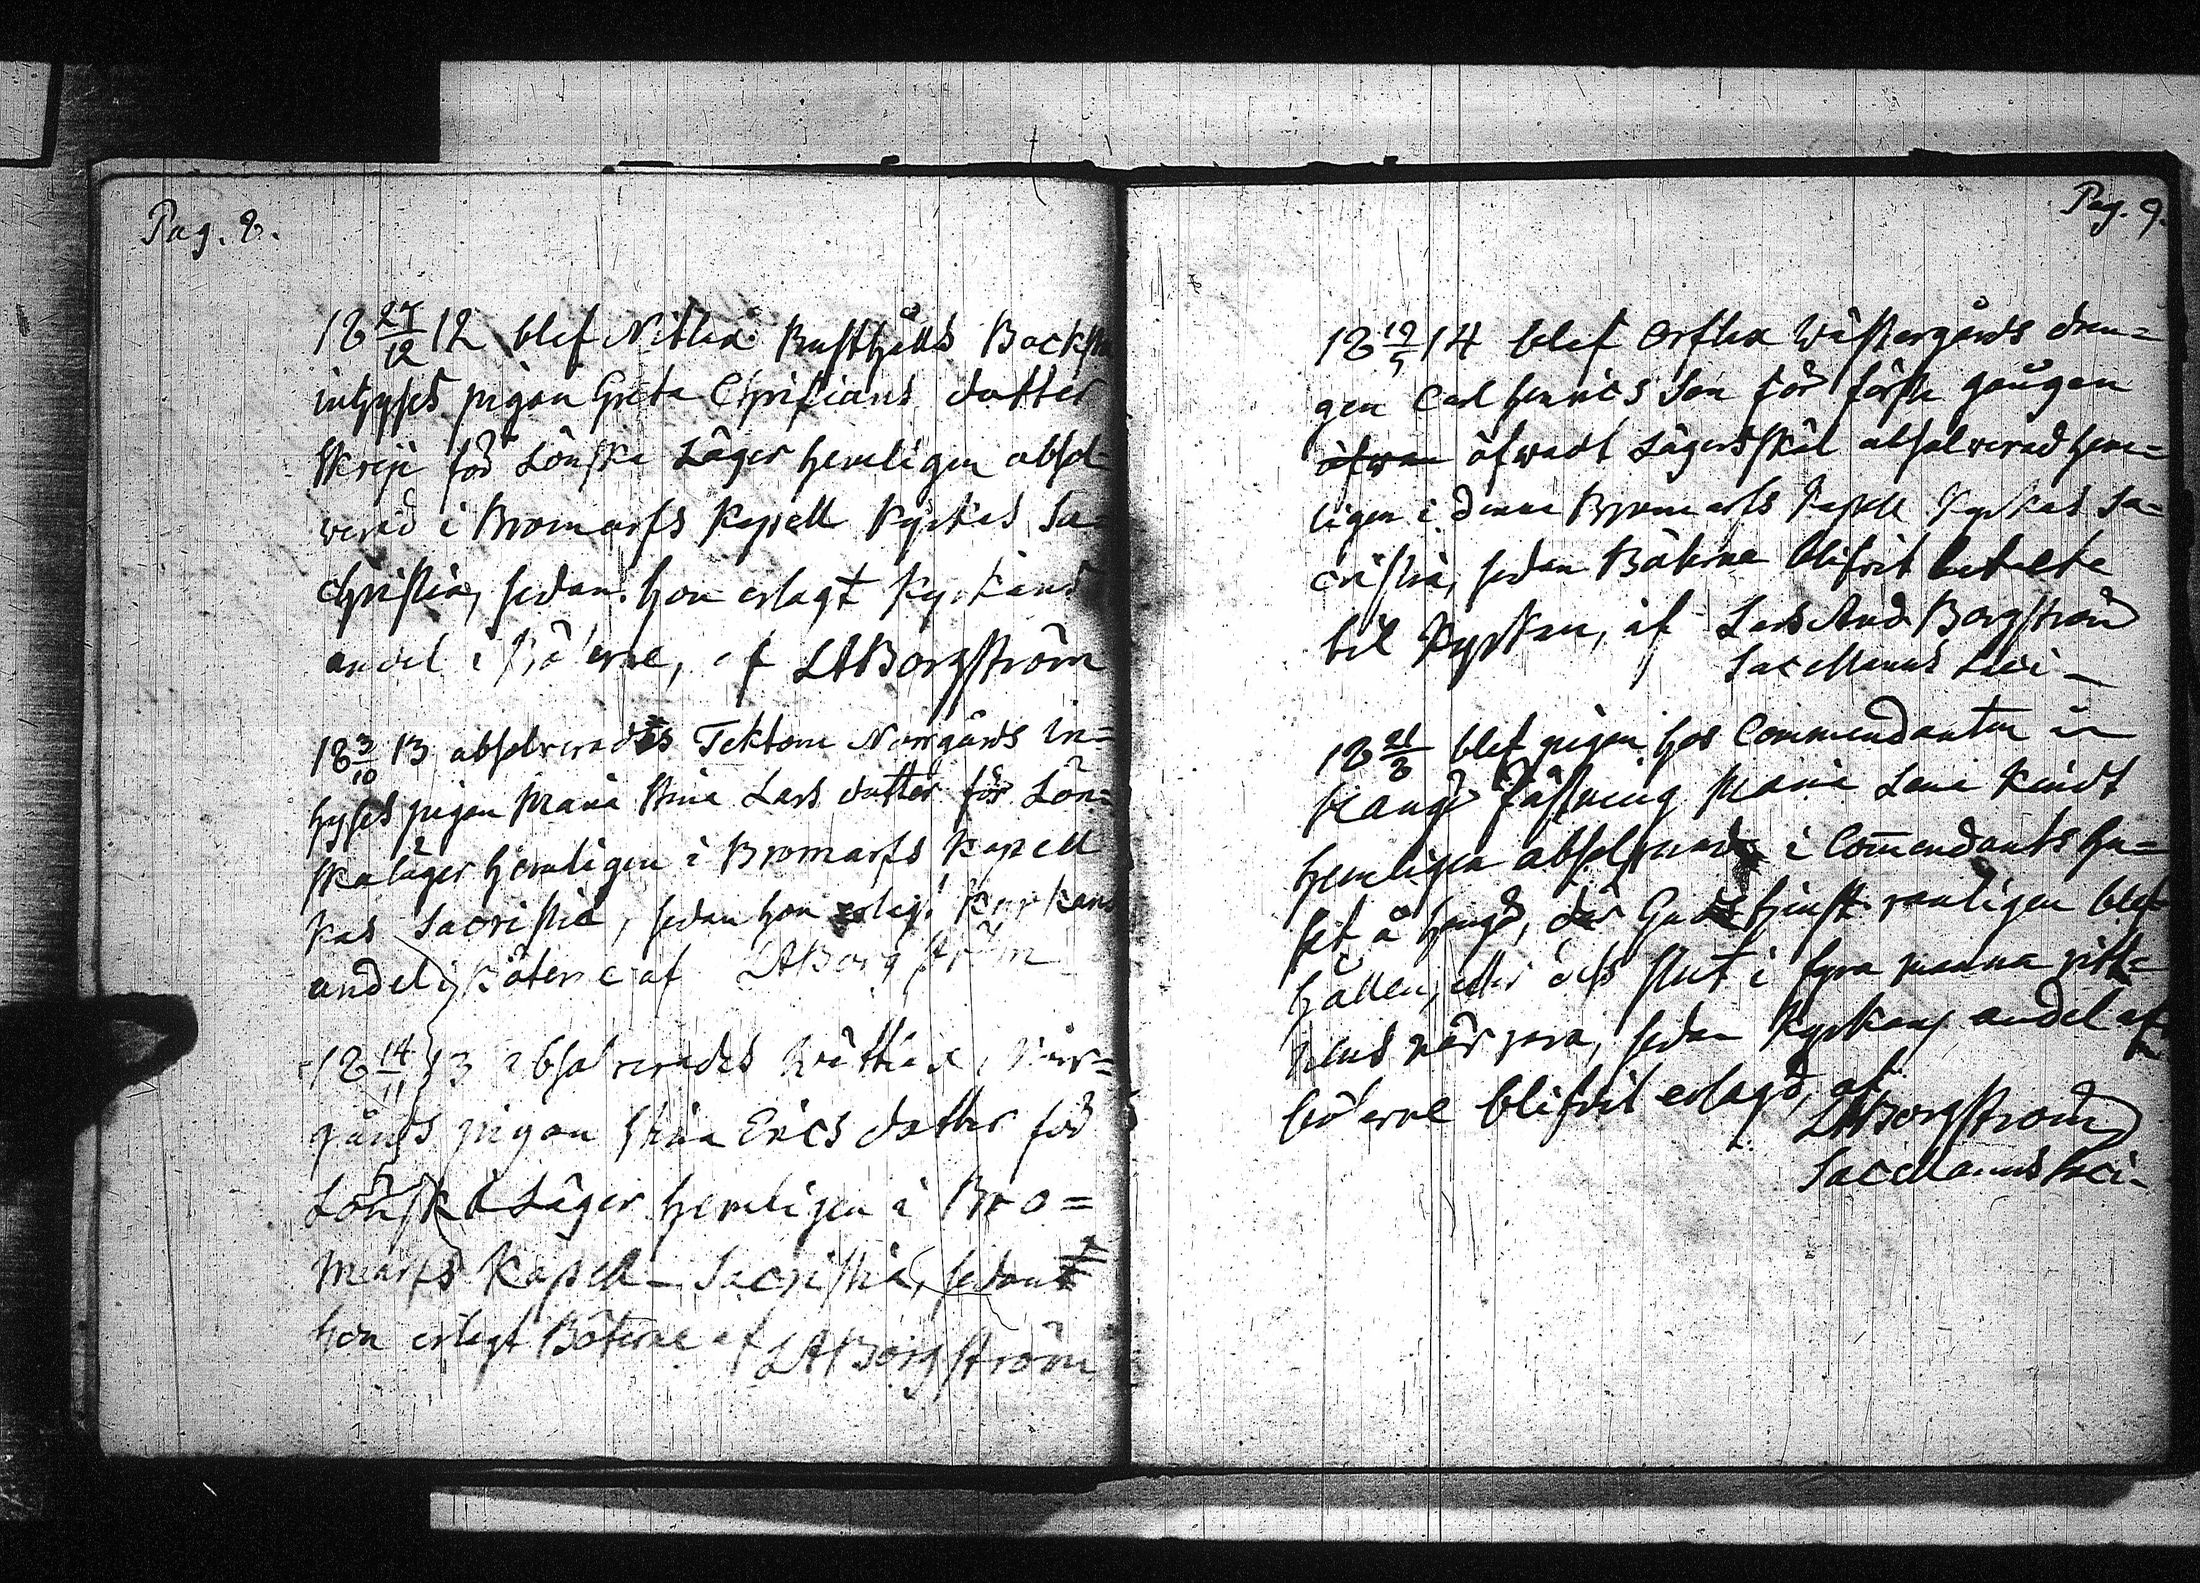 Pag. 8.
18 27/12 12 blef Nitlax Rusthålls Backstu
inhyses pigan Greta Christians dotter
Skreji för Lönska Läger hemligen absol-
verad i Bromarfs Kapell Kyrkas Sa-
christia, sedan hon erlagt Kyrkans
andel i Böterne, af LABorgström
18 3/10 13 absolverades Tektom Norrgårds in=
hyses pigan Maria Stina Lars dotter för Lön=
ska läger hemligen i Bromarfs Kapell
kas Sacristia, sedan hon erlagt Kyrkans
andel i Böterne af LABorgström
18 14/11 13 absolverades Wättlax Nårr=
gårds pigan Stina Erics dotter för
Lönska Läger hemligen i Bro=
marfs Kapell Sacristia, sedan
hon erlagt Böterne af LABorgström
Pag. 9.
18 19/5 14 blef Orslax Wästergårds dren=
gen Carl Henrics Son för första gången
öfwan öfwadt Lägersmål absolverad hem=
ligen i denna Bromarfs Kapell Kyrkas Sa=
cristia, sedan Böterne blifvit betalte
til Kyrkan, af Lars And Borgström
Sacellanus Loci
18 21/8 blef pigan hos Commendanten å
Hangö Fästning Maria Lena Kindt
hemligen absolverad i Commendants hu=
set å Hangö, där Gudstjenst vanligen blef
hållen, eller ock slut i fyra manna vitt=
nens närvara, sedan Kyrkans andel af
böterne blifvit erlagd, af
LABorgström
Sacellanus Loci